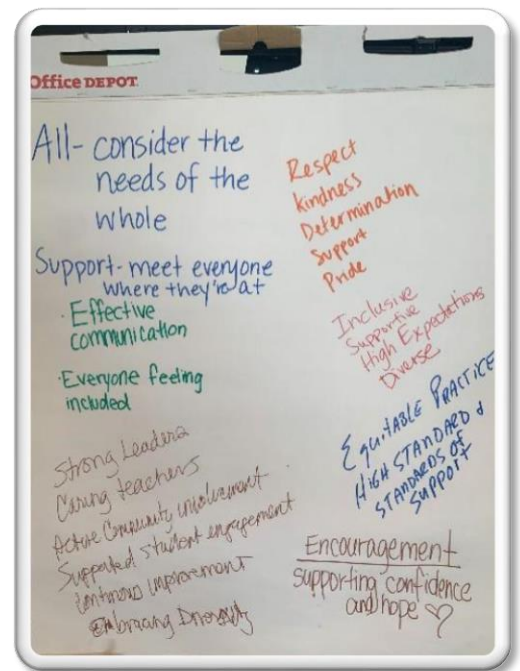 Office DEPOT
All- consider the
needs of the
whole
Support- meet everyone
where they're at
· Effective
communication
· Everyone feeling
included
Strong Leaders
Caring teachers
Active Community involvement
Supported student engagement
Continous improvement
Embracing Diversity
Respect
kindness
Determination
Support
Pride
Inclusive
Supportive
High Expectations
Diverse
EQUITABLE PRACTICE
HIGH STANDARD &
STANDARDS OF
SUPPORT
Encouragement
supporting confidence
and hope ♡